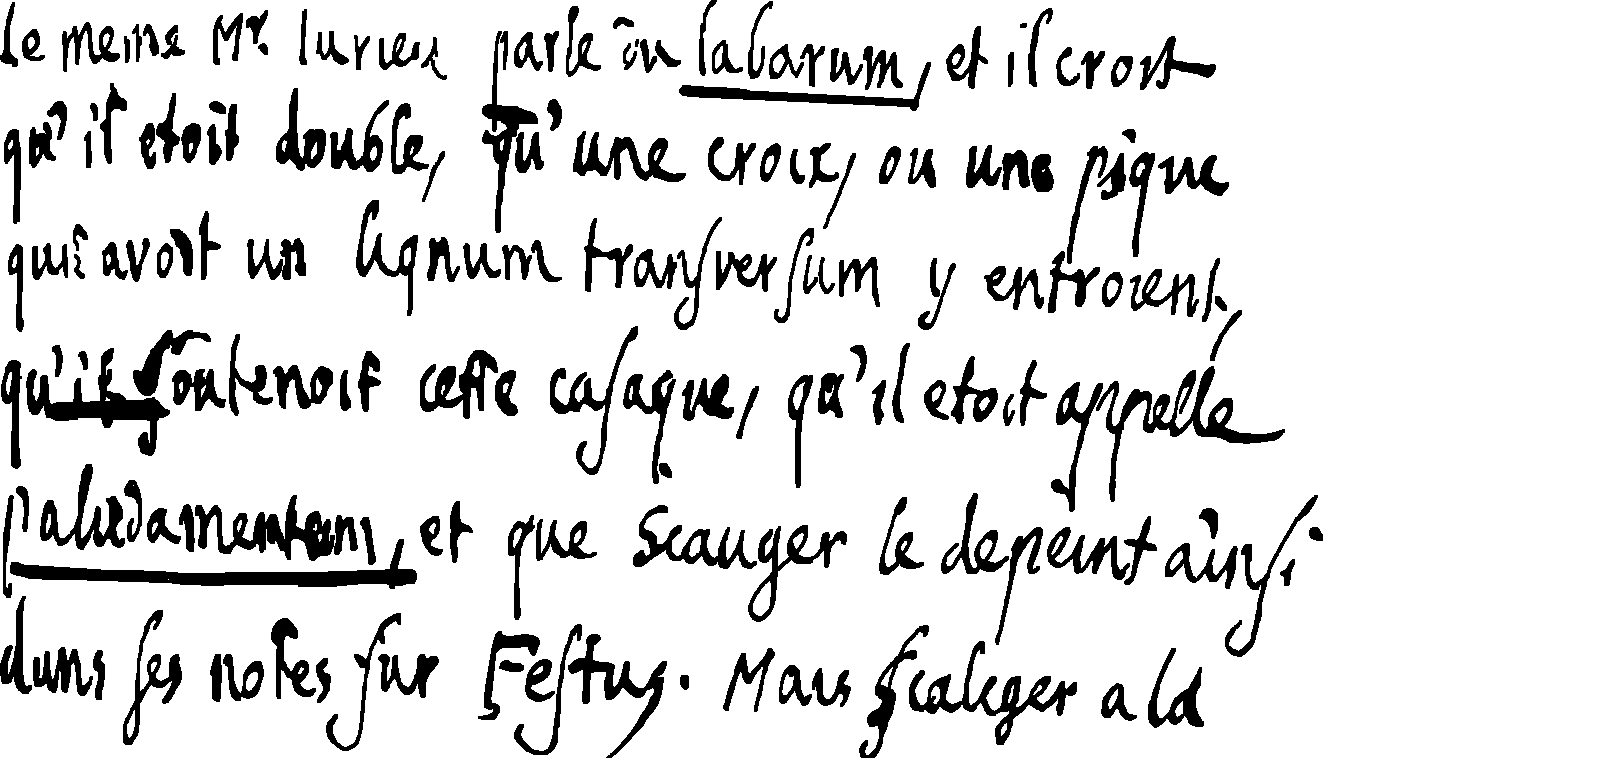 Le meme Mr. Iurieu parle du labarum, et il croit
qu'il etoit double, qu'une croix, ou une pique
qui avoit un lignum tranſverſum y entroient,
qu'il ſoutenoit cette caſaque, qu'il etoit appelle
paludamentum, et que Scauger le depeint ainſi
dans ſes notes ſur Feſtus. Mais ſcaliger a la